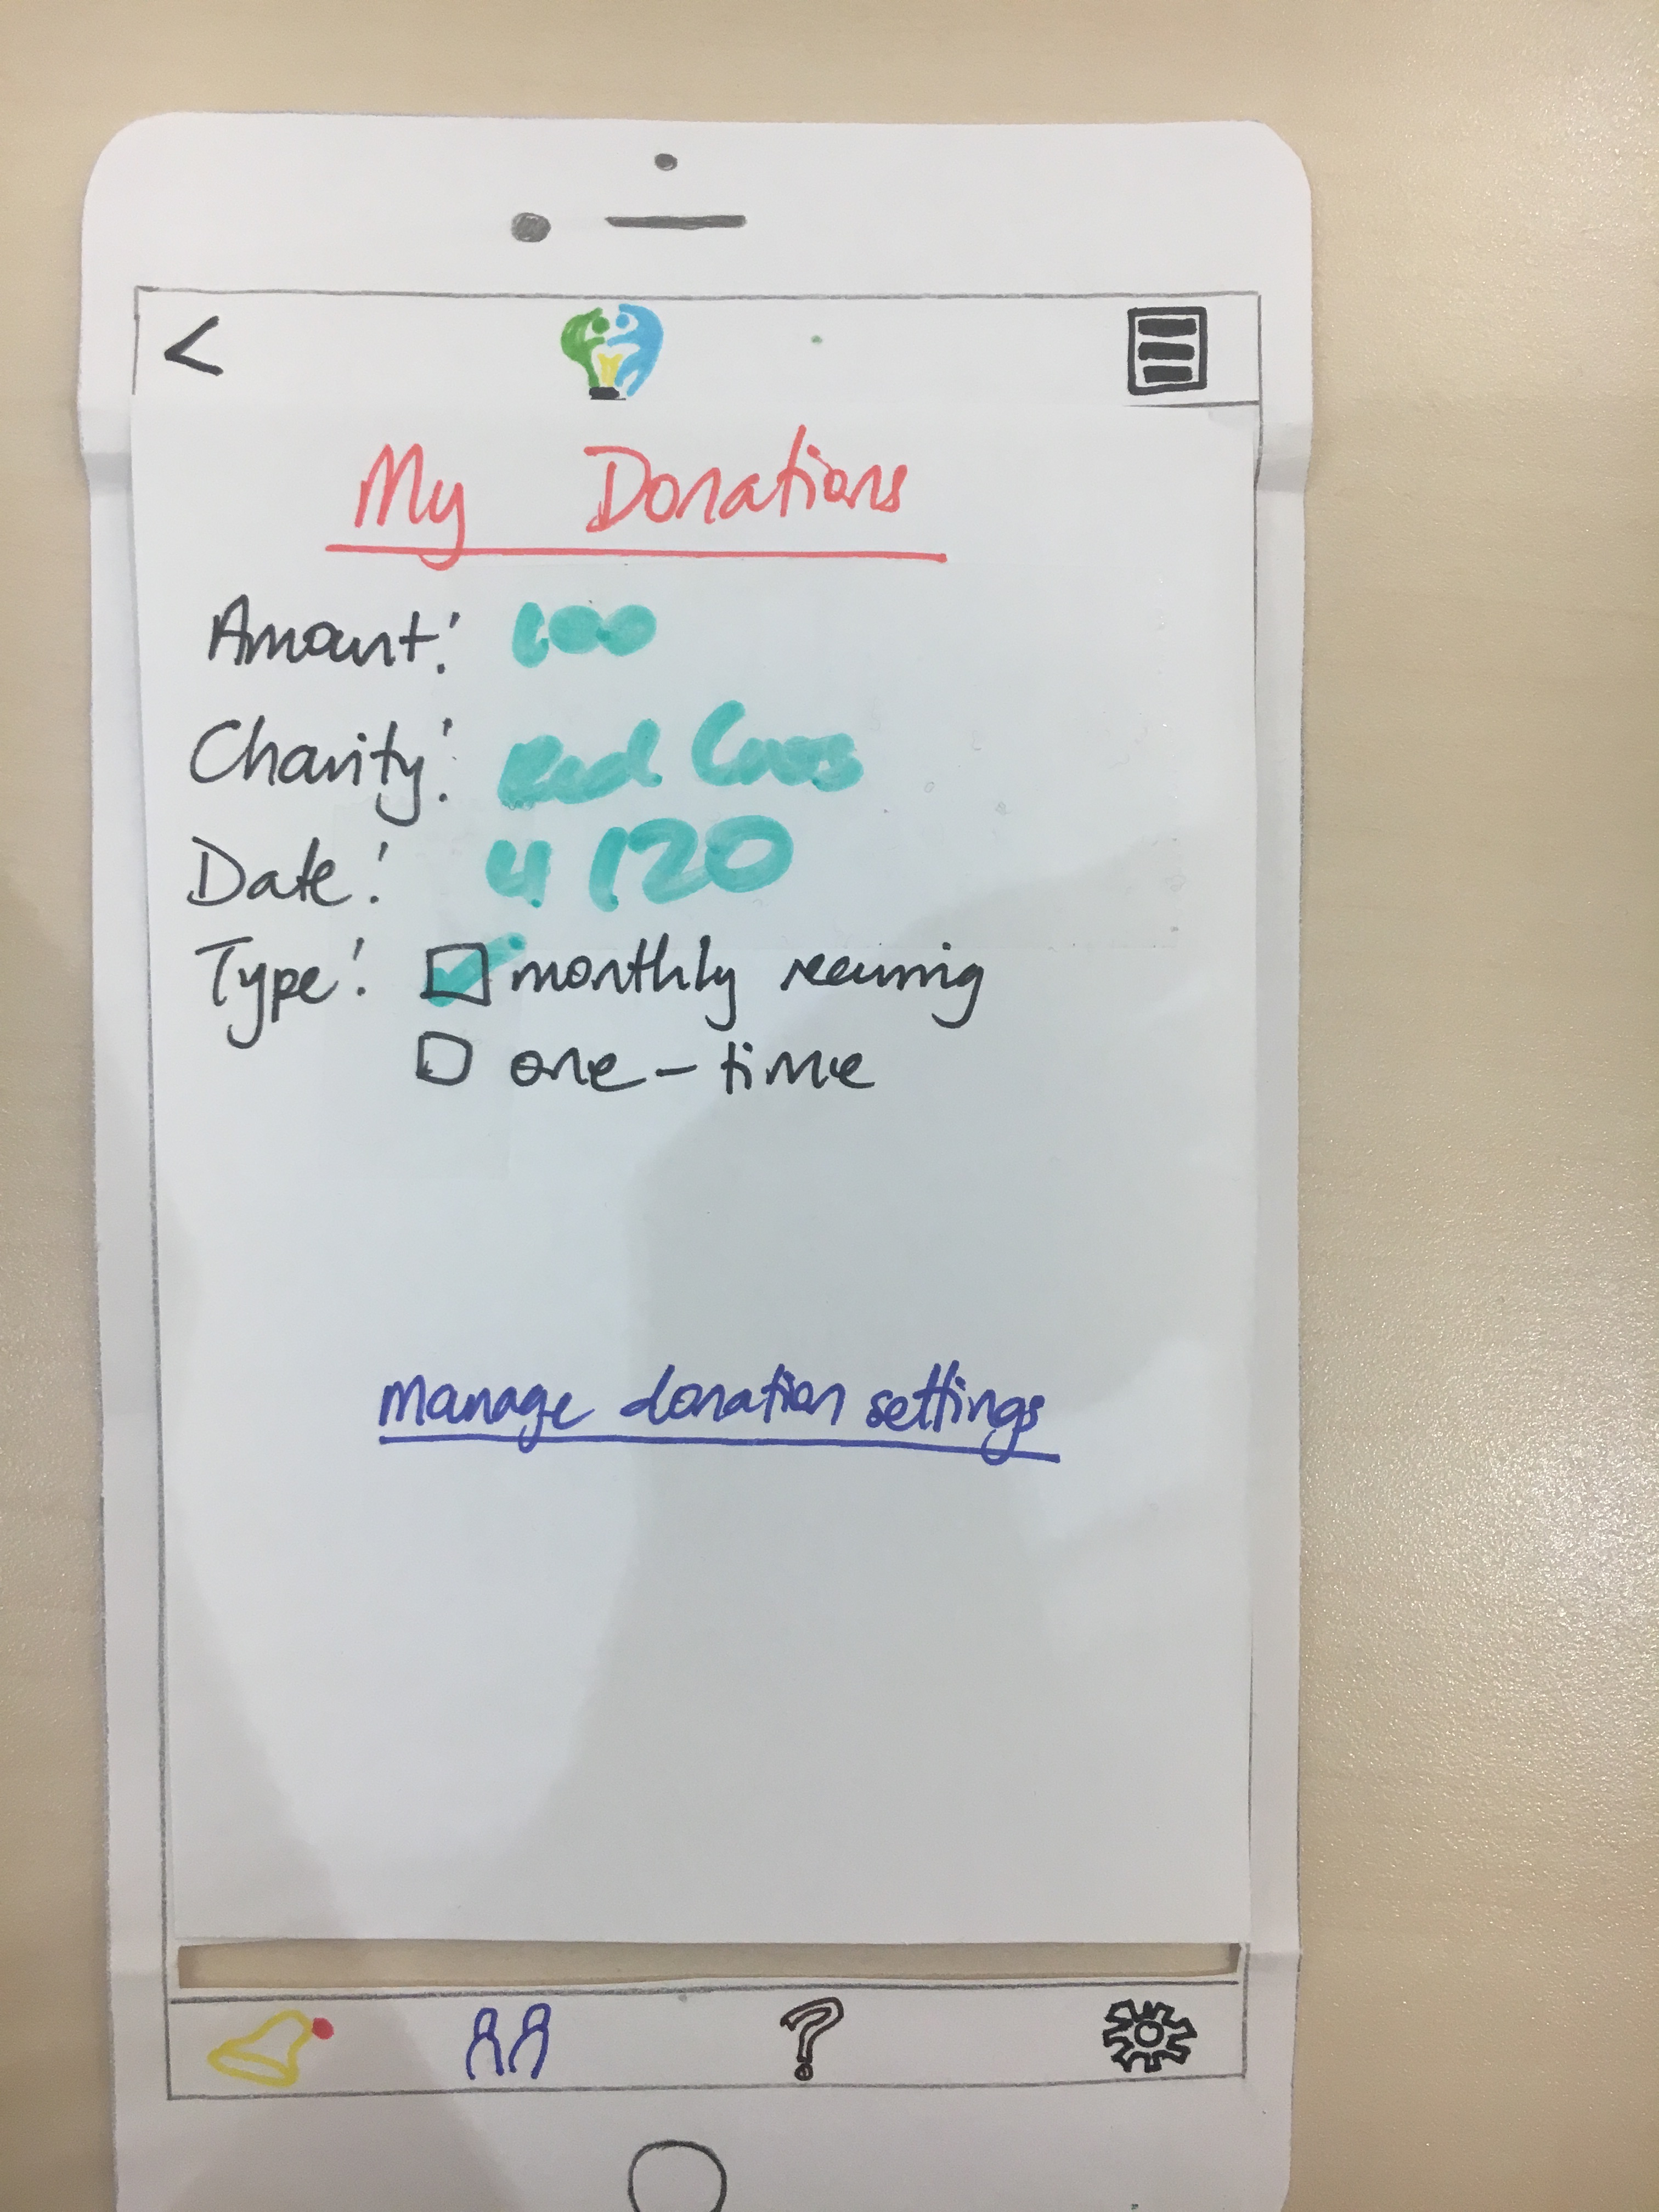 My Donations
Amount: 100
Charity: Red Cross
Date: 4/20
Type: monthly recurring
one-time
manage donation settings
?